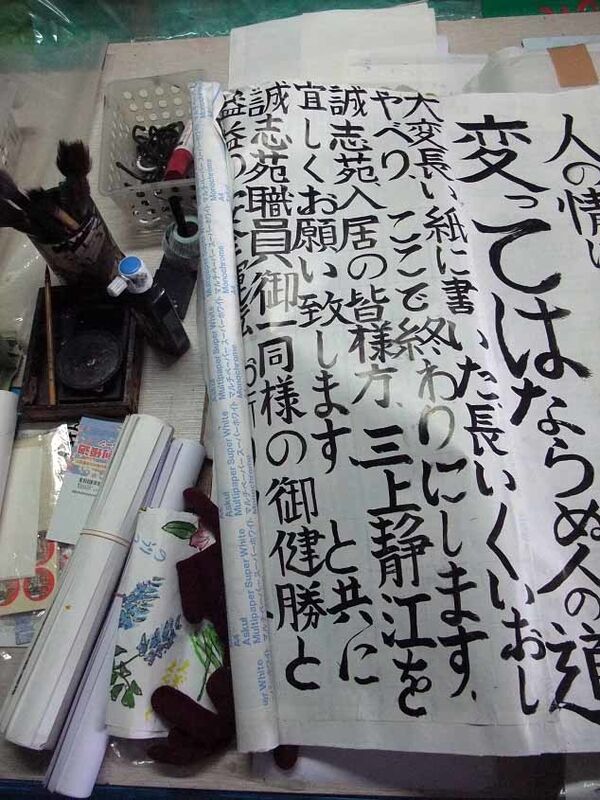 人の情
変ってはならぬ人の道
大変長い紙に書いた長いくいおし
やべり、ここで終わりにします、
誠志苑入居の皆様方 三上静江を
宜しくお願い致します と共に
誠志苑職員御一同様の御健勝と
Askul
Multipaper Super White
マルチペーパー スーパーホワイト
Monochrome
A4